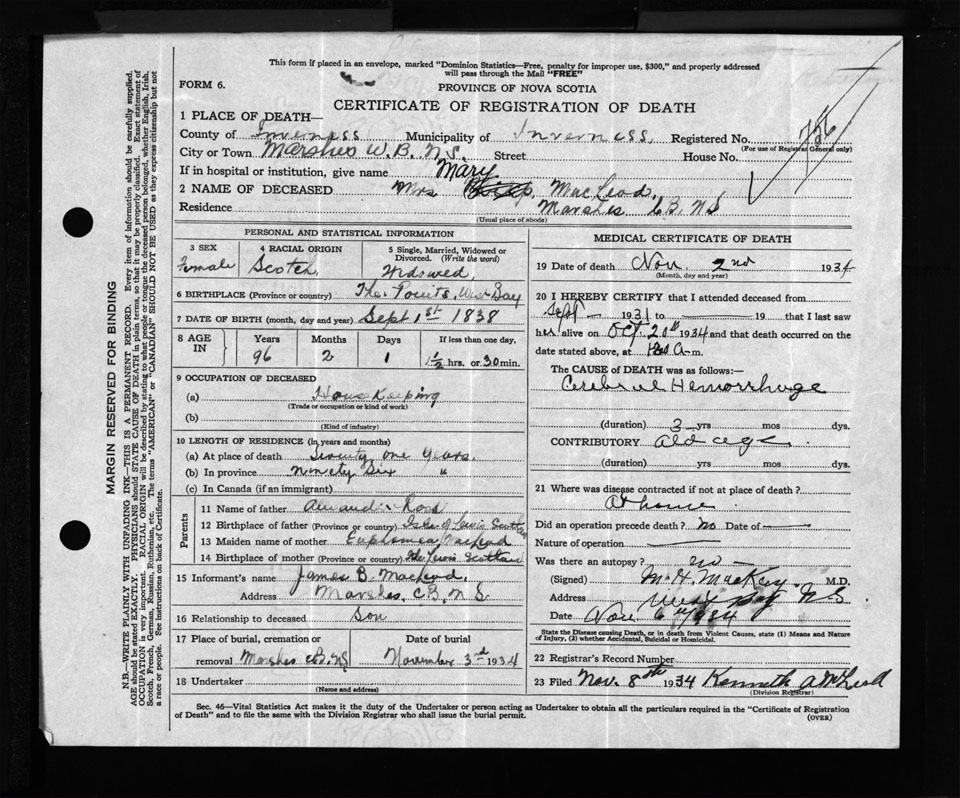 This form if placed in an envelope, marked "Dominion Statistics—Free, penalty for improper use, $300," and properly addressed
will pass through the Mail "FREE"
FORM 6.
PROVINCE OF NOVA SCOTIA
CERTIFICATE OF REGISTRATION OF DEATH
1 PLACE OF DEATH—
County of Inverness Municipality of Inverness, Registered No. 726
(For use of Registrar General only)
City or Town Marshes W.B. N.S. Street House No.
If in hospital or institution, give name
Mary
2 NAME OF DECEASED Mrs MacLeod,
Residence Marshes C.B. N S
(Usual place of abode)
PERSONAL AND STATISTICAL INFORMATION
3 SEX
Female
4 RACIAL ORIGIN
Scotch
5 Single, Married, Widowed or
Divorced. (Write the word)
Widowed,
6 BIRTHPLACE (Province or country) The Points West Bay
7 DATE OF BIRTH (month, day and year) Sept 1st 1838
8 AGE
IN
Years
96
Months
2
Days
1
If less than one day,
1½ hrs. or 30 min.
9 OCCUPATION OF DECEASED
(a) House Keeping
(Trade or occupation or kind of work)
(b)
(Kind of industry)
10 LENGTH OF RESIDENCE (in years and months)
(a) At place of death Seventy one Years.
(b) In province Ninety Six "
(c) In Canada (if an immigrant)
Parents
11 Name of father Ross
12 Birthplace of father (Province or country) Isle of Lewis Scotland
13 Maiden name of mother MacLeod
14 Birthplace of mother (Province or country) Isle Lewis Scotland
15 Informant's name James B. MacLeod,
Address Marshes, C.B. N S
16 Relationship to deceased Son
17 Place of burial, cremation or
removal Marshes C.B. NS
Date of burial
November 3rd 1934
18 Undertaker
(Name and address)
MEDICAL CERTIFICATE OF DEATH
19 Date of death Nov 2nd 1934
(Month, day and year)
20 I HEREBY CERTIFY that I attended deceased from
Sept — 1931 to 19 that I last saw
her alive on Oct. 20th 1934 and that death occurred on the
date stated above, at A-m.
The CAUSE of DEATH was as follows:—
Cerebral Hemorrhage
(duration) 3 yrs mos dys.
CONTRIBUTORY Old age
(duration) yrs mos dys.
21 Where was disease contracted if not at place of death?
At home
Did an operation precede death? no Date of
Nature of operation
Was there an autopsy? no
(Signed) M.D.
Address West Bay N S
Date Nov 6th 1934
State the Disease causing Death, or in death from Violent Causes, state (1) Means and Nature
of Injury, (2) whether Accidental, Suicidal or Homicidal.
22 Registrar's Record Number
23 Filed Nov. 8th 1934 Kenneth A McLeod
(Division Registrar)
Sec. 46—Vital Statistics Act makes it the duty of the Undertaker or person acting as Undertaker to obtain all the particulars required in the "Certificate of Registration
of Death" and to file the same with the Division Registrar who shall issue the burial permit.
(OVER)
MARGIN RESERVED FOR BINDING
N.B.—WRITE PLAINLY WITH UNFADING INK—THIS IS A PERMANENT RECORD. Every item of information should be carefully supplied.
AGE should be stated EXACTLY. PHYSICIANS should STATE CAUSE OF DEATH in plain terms, so that it may be properly classified. Exact statement of
OCCUPATION is very important. RACIAL ORIGIN will be described by stating to what people or tongue the deceased person belonged, whether English, Irish,
Scotch, French, German, Russian, Ruthenian, etc. The terms "AMERICAN" or "CANADIAN" SHOULD NOT BE USED as they express citizenship but not
a race or people. See instructions on back of Certificate.